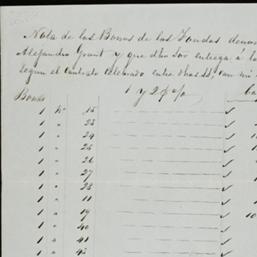 Nota de los Bonos de las Fundas
Alejandro Grant y que dho Sor entrega á
segun el Contrato Celebrado entre dhos SS,
1 y 2 p%
Bonos
1 No 15
1 " 23
1 " 24
1 " 25
1 " 26
1 " 27
1 " 28
1 " 11
1 " 19
1 " 40
1 " 41
1 " 43